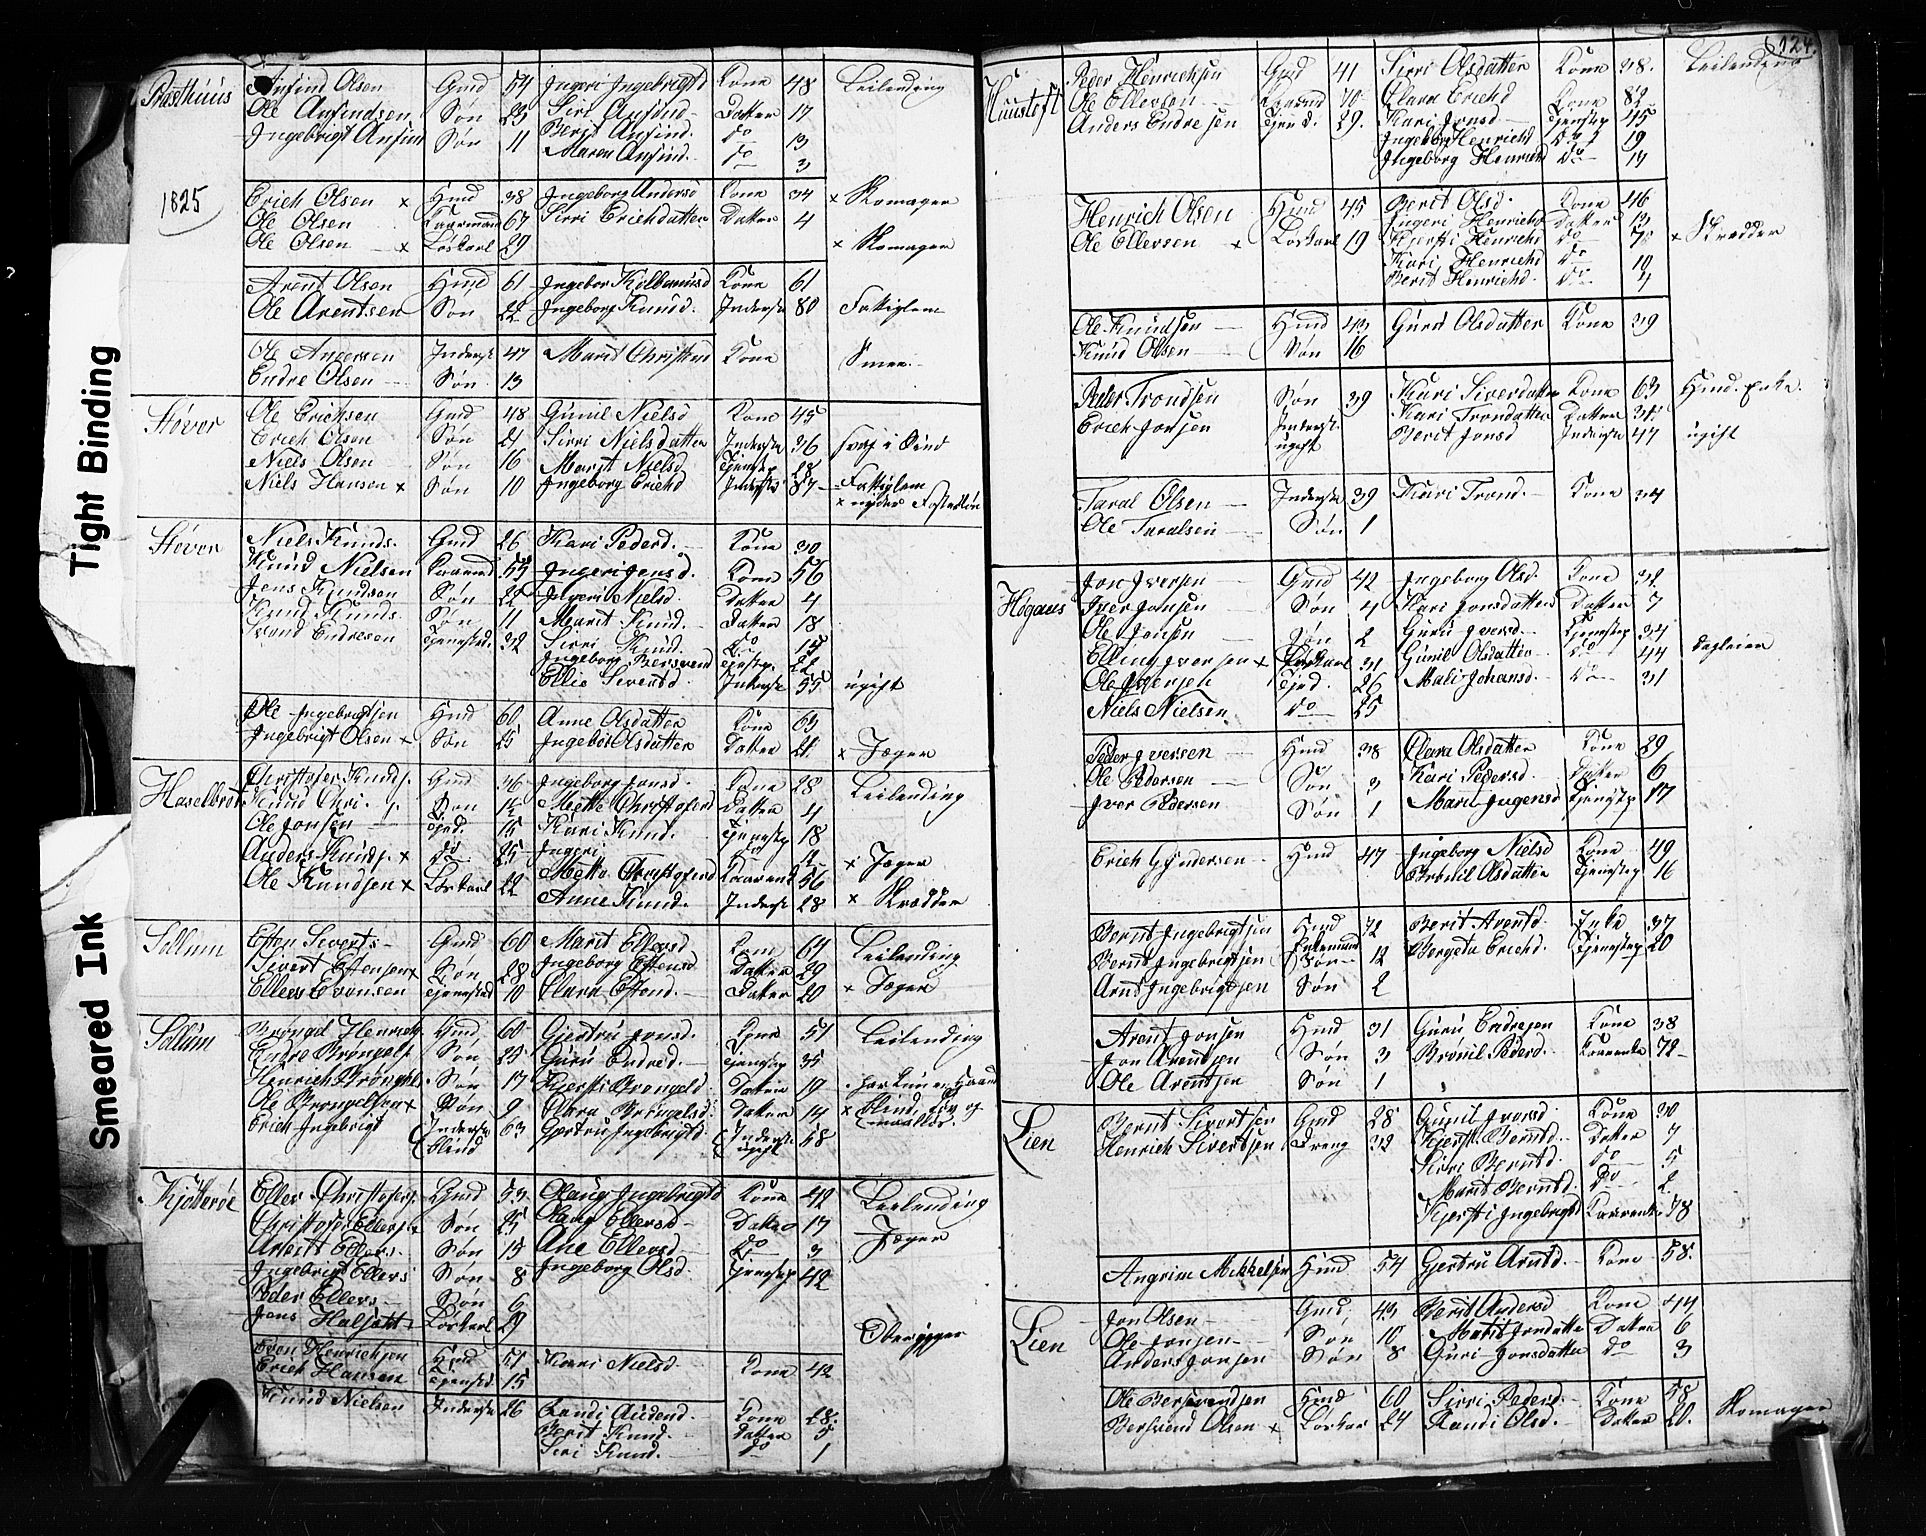 Tight Binding
Smeared Ink
Præsthuus
1825
Ansind Olsen Gmd 54 Ingeri Ingebrigtd Kone 48 Leilending
Ole Ansindsen Søn 23 Siri Ansind Datter 17
Ingebrigt Ansind Søn 11 Berit Ansind. do 13
Maren Ansind. do 3
Erich Olsen × Hmd 38 Ingeborg Andersd Kone 34 × Skomager
Ole Olsen Kaarmand 67 Sirri Erichdatter Datter 4
Ole Olsen × Løskarl 29 × Skomager
Arent Olsen Hmd 61 Ingebor Kone 61
Ole Arentsen Søn 22 Ingeborg Knud. Inderste 80 Fattiglem
Ole Andersen Inderst 47 Marit Christend Kone Smed
Endre Olsen Søn 13
Støver
Ole Erichsen Gmd 48 Gunil Nielsd Kone 45
Erich Olsen Søn 21 Sirri Nielsdatter Inderste 36
Niels Olsen Søn 16 Marit Nielsd Tjenstep 28
Niels Hansen × Søn 10 Ingeborg Erichd Inderste 87 Fattiglem
× nyder
Støver
Niels Knuds. Gmd 26 Kari Pederd. Kone 30
Knud Nielsen Kaarmd 55 Ingeri Jensd. Kone 56
Jens Knudsen Søn 22 Ingeri Nielsd. Datter 4
Knud Knuds Søn 11 Marit Knud. Datter 18
Endresen Tjenisted. 32 Sirri Knud. do 15
Ingeborg Tjenstp. 22
Ellie Siverd. Inderste 55 ugift
Ole Ingebrigtsen Hmd 60 Anne Olsdatter Kone 63
Ingebrigt Olsen × Søn 25 Ingebor Olsdatter Datter 22 × Jæger
Haselbrek
Christofer Knuds. Gmd 46 Ingeborg Jonsd. Kone 28 Leilending
Knud Chri. Søn Mette Christoferd Datter 4
Ole Jonsen Tjed. 15 Kari Knud. Tjenestep 18
Anders Knuds. × do 25 Ingeri × Jæger
Ole Knudsen × Løskarl 22 Mette Christoferd Kaarenk 56 × Skrædder
Anne Knud. Inderst 28
Sollum
Esten Siverts Gmd 60 Marit Ellersd Kone 64 Leilending
Sivert Estensen × Søn 28 Ingeborg Estensd Datter 29
Ellers Evensen Tjenested 10 Clara Estend. Datter 20 × Jæger
Sollum
Brongel Henrich. Gmd 60 Gjertru Jonsd. Kone 51 Leilending
Endre Brongels Søn 29 Guru Endred. Tjenestep 35
Henrich Brongels Søn 17 Kjersti Brongeld. Datter 19
Ole Brongelsen × Søn 9 Clara Brongelsd. Datter 14 × blind,
Erich Ingebrigt Inderste blind 63 Gjertru Ingebrigtd Inderste ugift 58
Kjøtterøe
Eller Christofers. Gmd 53 Olaug Ingebrigtd Kone 42 Leilending
Christofer Ellers. Søn 25 Olaug Ellersd Datter 17 Jæger
Arent Ellers. Søn 15 Ane Ellersd do 3
Ingebrigt Ellers Søn 8 Ingeborg Olsd. Tjenstep 42
Peder Ellers Søn 6
Jens Løskarl 29
Even Henrichsen Hmd 55 Kari Nielsd Kone 42
Erich Hansen Tjenisted. 15
Knud Nielsen Inderste 26 Randi Audend. Kone 28
Berit Knud. Datter 5
Siri Knud. do 1
124.
Peder Henrichsen Gmd 41 Sirri Olsdatter Kone 38. Leilending
Ole Ellersen Kaarmd 70 Clara Erichd Kone 82
Anders Endresen Tjened. 29. Kari Jonsd Tjenstep 45
Ingeborg Henrichd do 19
Ingeborg Henrichd do 14
Henrich Olsen Hmd 45 Berit Olsd. Kone 46
Ole Ellersen × Løskarl 19 Ingeri Henrichd Datter 13 × Skredder
Kjersti Henrichd do 7
Kari Henrichd do 10
Berit Henrichd. do 4
Ole Knudsen Hmd 43 Guru Olsdatter Kone 39
Knud Olsen Søn 16
Peder Trondsen Søn 39 Kari Siverdatter Kone 63 Hmd. Enke.
Erich Jonsen Inderst. ugift Kari Trondatter Datter
Berit Jonsd Inderste 47 ugift
Taral Olsen Inderste 39 Kari Trond. Kone 34
Ole Taralsen Søn 1
Høgaas
Jon Iversen Gmd 42 Ingeborg Olsd. Kone 32
Iver Jonsen Søn 4 Kari Jonsdatter Datter 7
Ole Jonsen Søn 2 Guru Iversd. Tjenstep 34
Elling Iversen × Løskarl 31 Gunil Olsdatter do 44 Dagleier
Ole Iversen Tjed. 26 Mali Johansd. do 31
Niels Nielsen do 25
Peder Iversen Hmd 38 Clara Olsdatter Kone 29
Ole Pedersen Søn 3 Kari Pedersd. Datter 6
Iver Pedersen Søn 1 Marit Tjenstep 17
Erich Hmd 47 Ingeborg Nielsd Kone 49
Brønil Olsdatter Tjenstep 16
Bernt Ingebrigtsen Hmd Enkemand 72 Berit Arentd. Enke 37
Bernt Ingebrigtsen Søn 12 Bergeta Erichd. Tjenstep 20
Arnt Ingebrigtsen Søn 2
Arent Jonsen Hmd 31 Guru Endresen Kone 38
Jon Arentsen Søn 3 Brønil Pederd. Kaarenke 72
Ole Arentsen Søn 1
Lien
Bernt Sivertsen Gmd 28 Gunil Iversd Kone 30
Henrich Sivertsen Dreng 32 Kjerst. Berntd. Datter 7
Sirri Berntd. do 5
Marit Berntd. do 2
Kjersti Ingebrigtd Kaarenke 78
Angrim Mikkelsen Hmd 54 Gjertru Arntd. Kone 58.
Lien
Jon Olsen Gmd 43 Berit Andersd Kone 44
Ole Jonsen Søn 10 Marit Jonsdatte Datter 6
Anders Jonsen Søn 8 Guri Jonsdatter do 3
Ole Bersvendsen Hmd 60 Sirri Pederd. Kone 58
Bersvend Olsen × Løskar 24 Randi Olsd. Datter 20. Skomager